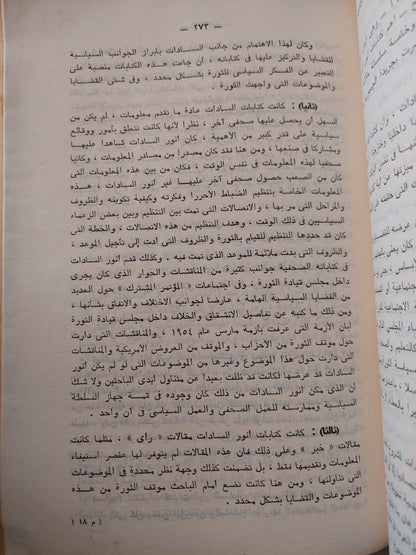 — ٢٧٣ —
وكان لهذا الاهتمام من جانب السادات بابراز الجوانب السياسية
للقضايا والتركيز عليها فى كتاباته ، ان جاءت هذه الكتابات منصبة على
التعبير عن الفكر السياسى للثورة بشكل محدد ، وفى شتى القضايا
والموضوعات التى واجهت الثورة .
(ثانيا) : كانت كتابات السادات عادة ما تقدم معلومات ، لم يكن من
السهل أن يحصل عليها صحفى آخر ، نظرا لانها كانت تتعلق بأمور ووقائع
سياسية على قدر كبير من الأهمية ، كان أنور السادات شاهدا عليها
ومشاركا فى صنعها ، ومن هنا فقد كان مصدرا من مصادر المعلومات ، وكاتبا
صحفيا لهذه المعلومات فى نفس الوقت ، فكان من بين هذه المعلومات التى
كان من الصعب حصول صحفى آخر عليها غير أنور السادات ، هذه
المعلومات الخاصة بتنظيم الضباط الأحرار وفكرته وكيفية تكوينه والظروف
والمراحل التى مر بها ، والاتصالات التى تمت بين التنظيم وبين بعض الزعماء
السياسيين فى ذلك الوقت ، وهدف التنظيم من هذه الاتصالات ، والخطة التى
كان قد حددها التنظيم للقيام بالثورة والظروف التى أدت إلى تأجيل الموعد ،
والظروف التى بدت ملائمة للموعد الذى تمت فيه . وكذلك قدم أنور السادات
فى كتاباته الصحفية جوانب كثيرة من المناقشات والحوار الذى كان يجرى
داخل مجلس قيادة الثورة ، وفى اجتماعات «المؤتمر المشترك» حول العديد
من القضايا السياسية الهامة ، عارضا لجوانب الاختلاف والاتفاق بشأنها ،
ومن ذلك ما كتبه عن تفاصيل الانشقاق والخلاف داخل مجلس قيادة الثورة
ابان الأزمة التى عرفت بأزمة مارس عام ١٩٥٤ ، والمناقشات التى دارت
حول موقف الثورة من الأحزاب ، والموقف من العروض الأمريكية والمناقشات
التى دارت حول هذا الموضوع وغيرها من الموضوعات التى لو لم يكن أنور
السادات قد عرضها لكانت قد ظلت بعيدا عن متناول أيدى الباحثين ولا شك
ان الذى مكن أنور السادات من ذلك كان وجوده فى قمة جهاز السلطة
السياسية وممارسته للعمل الصحفى والعمل السياسى فى آن واحد .
(ثالثا) : كانت كتابات أنور السادات مقالات « رأى » ، مثلما كانت
مقالات « خبر » وعلى ذلك فان هذه المقالات لم يتوفر لها عنصر استيفاء
المعلومات وتقديمها فقط ، بل تضمنت كذلك وجهة نظر محددة فى الموضوعات
التى تناولتها ، ومن هنا كانت تضع أمام الباحث موقف الثورة من هذه
الموضوعات والقضايا بشكل محدد .
( م ١٨ )